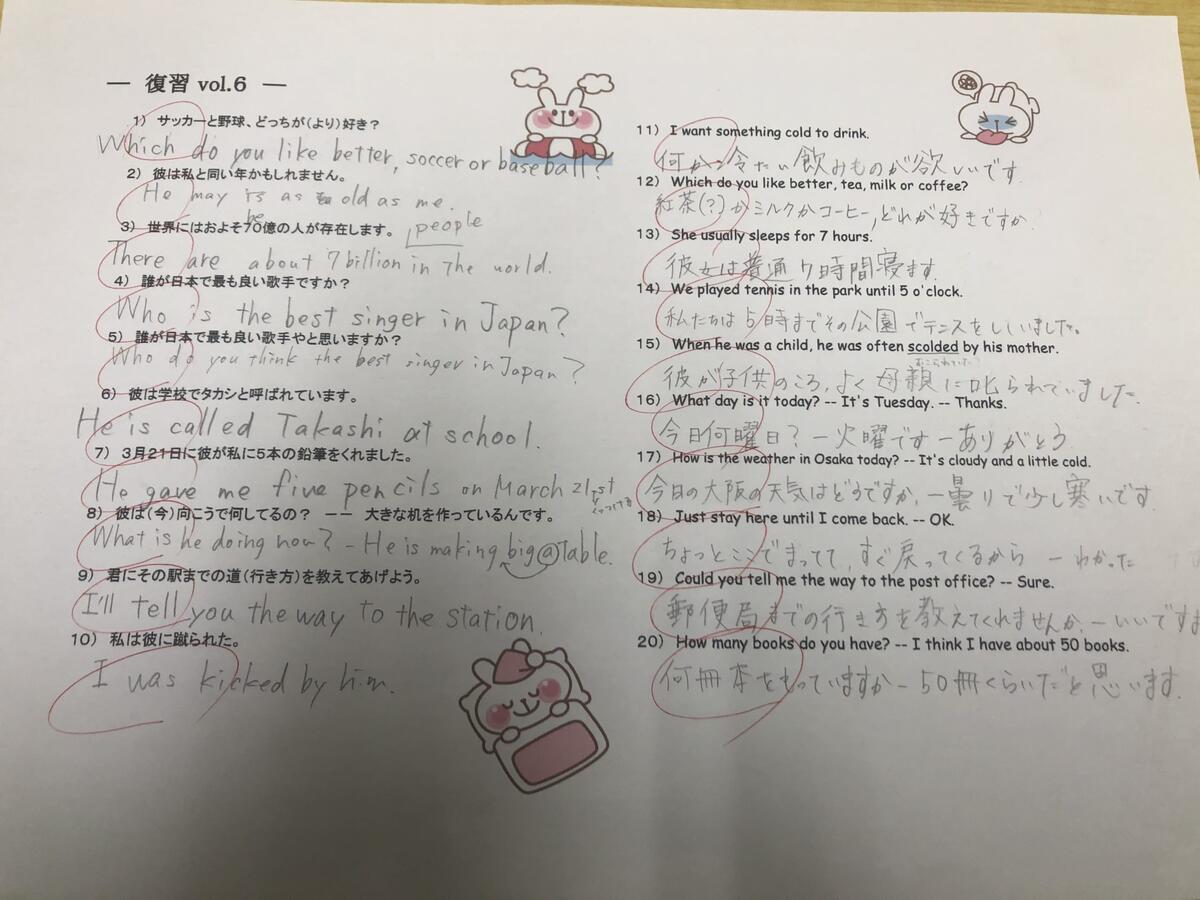 ― 復習 vol.6 ―
1） サッカーと野球、どっちが（より）好き？
Which do you like better, soccer or baseball?
2） 彼は私と同い年かもしれません。
He may is as old as me.
be
3） 世界にはおよそ70億の人が存在します。
people
There are about 7 billion in The world.
4） 誰が日本で最も良い歌手ですか？
Who is the best singer in Japan?
5） 誰が日本で最も良い歌手やと思いますか？
Who do you think the best singer in Japan?
6） 彼は学校でタカシと呼ばれています。
He is called Takashi at school.
7） 3月21日に彼が私に5本の鉛筆をくれました。
He gave me five pencils on March 21st
8） 彼は（今）向こうで何してるの？ ―― 大きな机を作っているんです。
What is he doing now? - He is making big a Table.
9） 君にその駅までの道（行き方）を教えてあげよう。
I'll tell you the way to the station.
10） 私は彼に蹴られた。
I was kicked by him.
11） I want something cold to drink.
何か冷たい飲みものが欲しいです.
12） Which do you like better, tea, milk or coffee?
紅茶(?)かミルクかコーヒー,どれが好きですか.
13） She usually sleeps for 7 hours.
彼女は普通7時間寝ます.
14） We played tennis in the park until 5 o'clock.
私たちは5時までその公園でテニスをしいました。
15） When he was a child, he was often scolded by his mother.
彼が子供のころ,よく母親に叱られていました.
16） What day is it today? -- It's Tuesday. -- Thanks.
今日何曜日? ー火曜ですーありがとう
17） How is the weather in Osaka today? -- It's cloudy and a little cold.
今日の大阪の天気はどうですか. ー曇りで少し寒いです
18） Just stay here until I come back. -- OK.
ちょっとここでまってて,すぐ戻ってくるから ーわかった
19） Could you tell me the way to the post office? -- Sure.
郵便局までの行き方を教えてくれませんか.ーいいですよ
20） How many books do you have? -- I think I have about 50 books.
何冊本をもっていますかー50冊くらいだと思います.